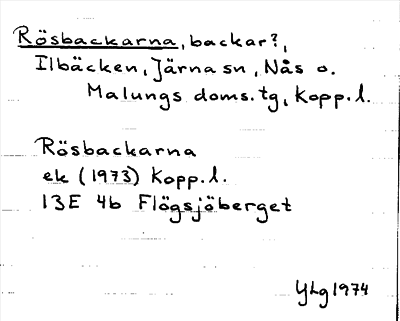 Rösbackarna, backar?,
Ilbäcken, Järna sn, Nås o.
Malungs doms.tg, Kopp.l.
Rösbackarna
ek (1973) Kopp.l.
13E 4b Flögsjöberget
YLg 1974